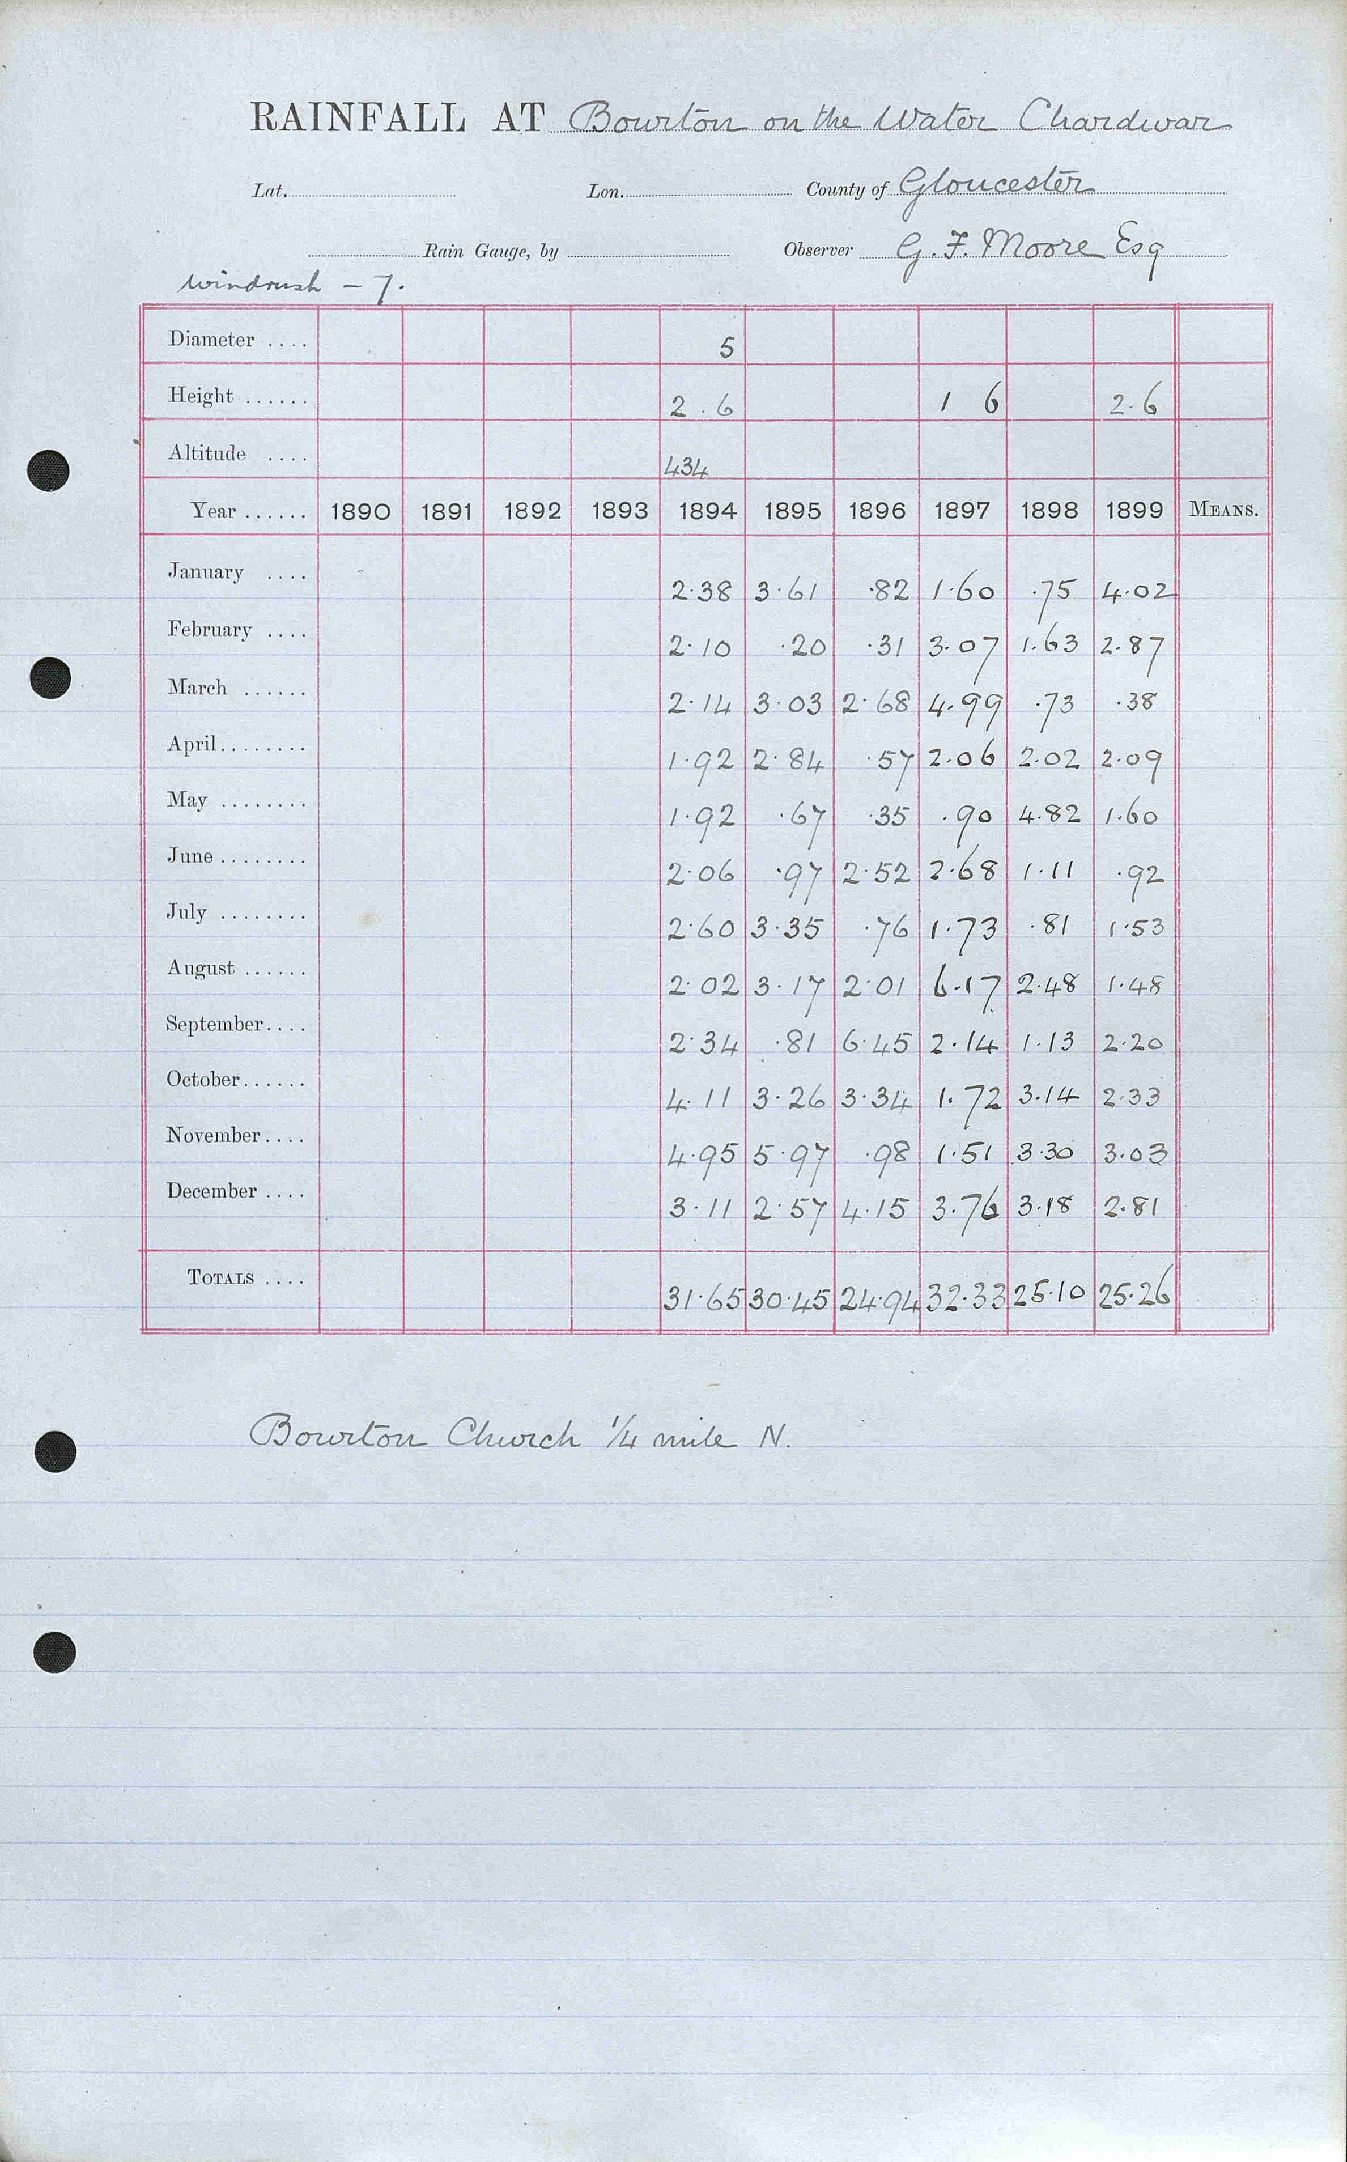 RAINFALL AT Bourton on the Water Chardwar
Lat. Lon. County of Gloucester
Rain Gauge, by Observer G. F. Moore Esq
Windrush - 7.
Diameter .... 5
Height ...... 2 . 6 1 6 2.6
Altitude .... 434
Year ...... 1890 1891 1892 1893 1894 1895 1896 1897 1898 1899 MEANS.
January .... 2.38 3.61 .82 1.60 .75 4.02
February .... 2.10 .20 .31 3.07 1.63 2.87
March ...... 2.14 3.03 2.68 4.99 .73 .38
April........ 1.92 2.84 .57 2.06 2.02 2.09
May ........ 1.92 .67 .35 .90 4.82 1.60
June ........ 2.06 .97 2.52 2.68 1.11 .92
July ........ 2.60 3.35 .76 1.73 .81 1.53
August ...... 2.02 3.17 2.01 6.17 2.48 1.48
September.... 2.34 .81 6.45 2.14 1.13 2.20
October...... 4.11 3.26 3.34 1.72 3.14 2.33
November.... 4.95 5.97 .98 1.51 3.30 3.03
December .... 3.11 2.57 4.15 3.76 3.18 2.81
TOTALS .... 31.65 30.45 24.94 32.33 25.10 25.26
Bourton Church 1/4 mile N.